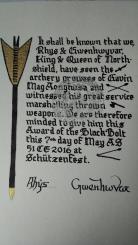 It shall be known that we,
Rhys & Gwenhwyvar,
King & Queen of North-
shield, have seen the
archery prowess of Gavin
MacAonghusa and
witnessed his great service
marshalling thrown
weapons. We are therefore
minded to give him this
Award of the Black Bolt
this 7th day of May AS
51 CE 2016 at
Schützenfest.
Rhys Gwenhwvar